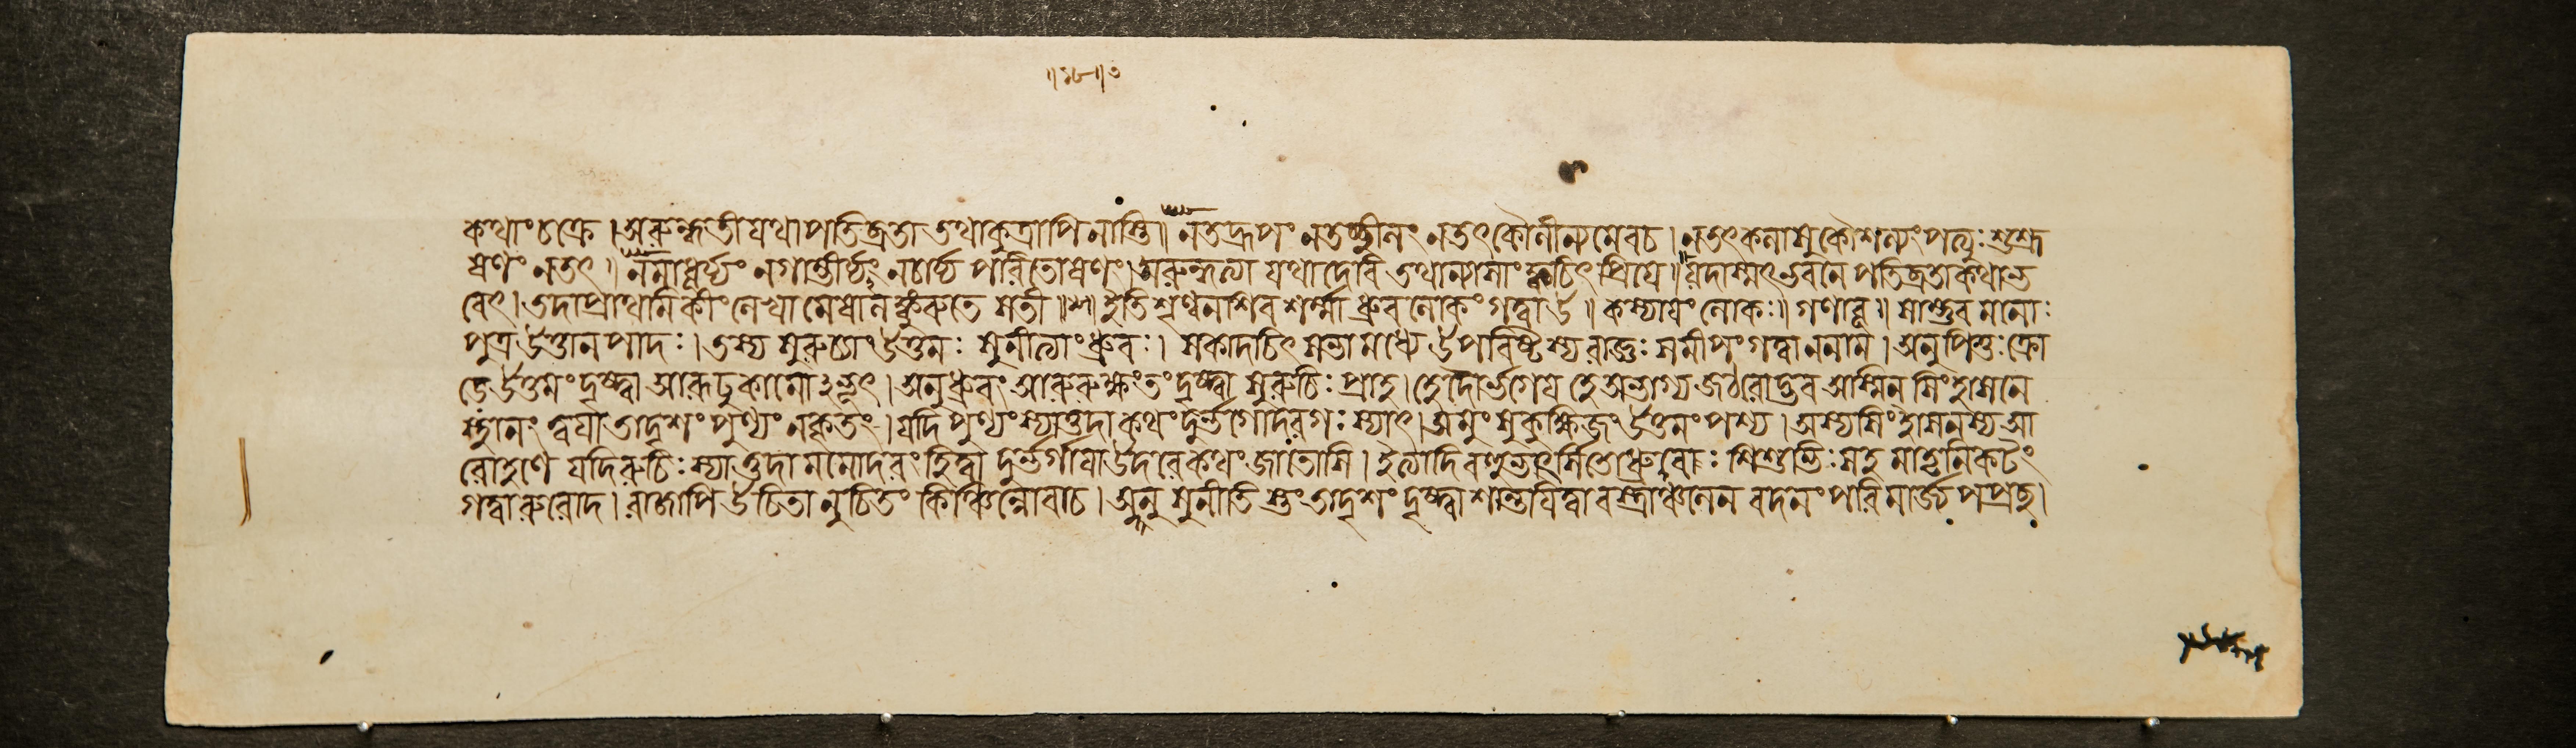 ॥১৮॥৩
কথাং চক্রে । অরুন্ধতী যথা পতিব্রতা তথা কুত্রাপি নাস্তি ॥ ন তদ্রূপং ন তচ্ছীলং ন তৎ কৌলীন্যমেব চ । ন তৎ কলাসু কৌশল্যং পত্যুঃ শুশ্রূ
ষণং ন তৎ ॥ ন মাধুর্য্যং ন গাম্ভীর্য্যং ন চার্য্য পরিতোষণং । অরুন্ধত্যা যথা দেবি তথান্যাসাং ক্বচিৎ প্রিয়ে ॥ যদাস্মৎ ভবনে পতিব্রতা কথা ভ
বেৎ । তদা প্রাথমিকীং লেখা মেষালঙ্কুরুতে সতী ॥ ইতি শৃণ্বন্ শিবশর্ম্মা ধ্রুবলোকং গত্বাউ ॥ কস্যায়ং লোকঃ ॥ গণাবূ ॥ স্বায়ম্ভুব মনোঃ
পুত্র উত্তানপাদঃ । তস্য সুরুচ্যাং উত্তমঃ সুনীত্যাং ধ্রুবঃ । স কদাচিৎ সভা মধ্যে উপবিষ্টস্য রাজ্ঞঃ সমীপং গত্বা ননাম । অনু পিতুঃ ক্রো
ডে উত্তমং দৃষ্ট্বা আরুঢুকামোঽভূৎ । অনু ধ্রুবং আরুরুক্ষন্তং দৃষ্ট্বা সুরুচিঃ প্রাহ । হে দৌর্ভগেয় হে অভাগ্য জঠরোদ্ভব অস্মিন্ সিংহাসনে
স্থানং ত্বয়া তাদৃশং পুণ্যং ন কৃতং । যদি পুণ্যং স্যাত্তদা কথং দুর্ভগোদরগঃ স্যাৎ । অমুং সুকুক্ষিজং উত্তমং পশ্য । অস্য সিংহাসনস্য আ
রোহণে যদি রুচিঃ স্যাত্তদা মমোদরং হিত্বা দুর্ভগায়া উদরে কথং জাতোসি । ইত্যাদি শিশুভিঃ সহ মাতৃনিকটং
গত্বা রুরোদ । রাজাপি উচিতানুচিতং কিঞ্চিন্নোবাচ । অনু সুনীতি স্তং তাদৃশং দৃষ্ট্বা শান্তয়িত্বা বস্ত্রাঞ্চলেন বদনং পরিমার্জ্য পপ্রচ্ছ ।